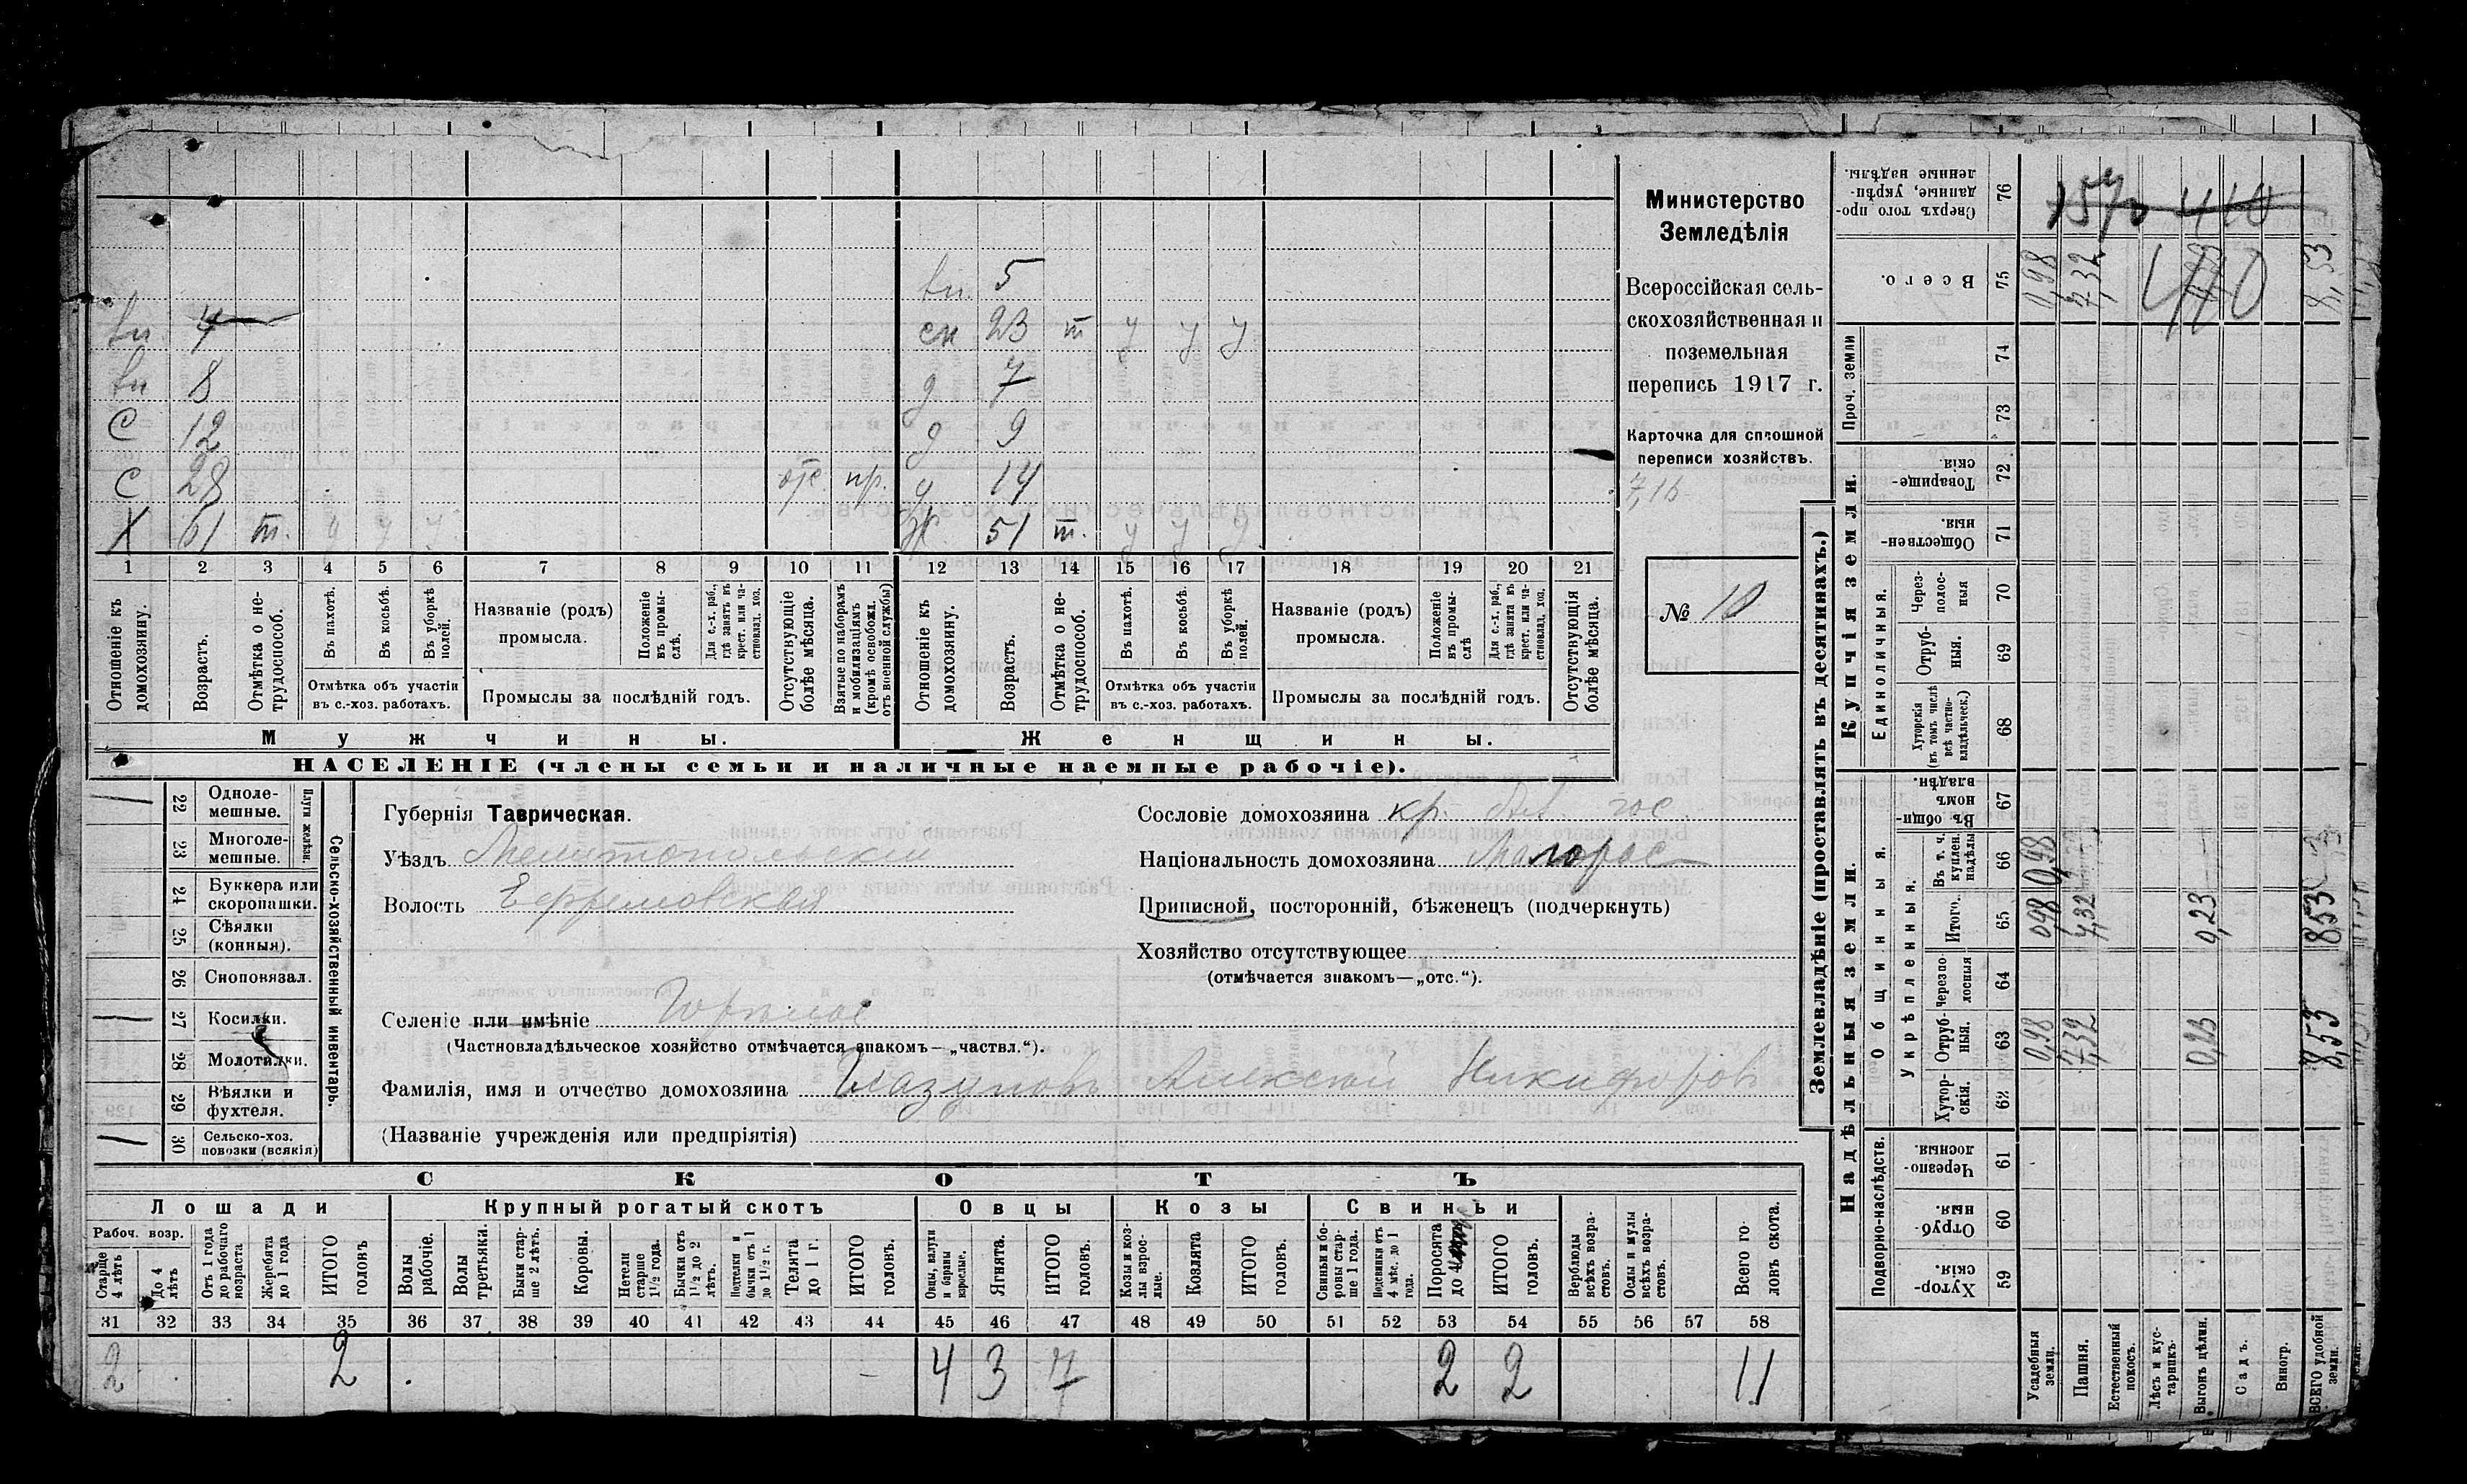 Министерство
Земледѣлія
Всероссійская сель-
скохозяйственная и
поземельная
перепись 1917 г.
Карточка для сплошной
переписи хозяйствъ.
№ 10
вн. 5
вн 4 сн 23 т у у у
вн 8 д 7
С 12 д 9
С 28 отс пр. д 14
Х 61 т. у у у ж. 51 т. у у у
1 2 3 4 5 6 7 8 9 10 11 12 13 14 15 16 17 18 19 20 21
Отношеніе къ домохозяину.
Возрастъ.
Отмѣтка о не-трудоспособ.
Въ пахотѣ.
Въ косьбѣ.
Въ уборкѣ полей.
Отмѣтка объ участіи
въ с.-хоз. работахъ.
Названіе (родъ)
промысла.
Положеніе въ промы-слѣ.
Для с.-х. раб., гдѣ занятъ въ крест. или ча-стновлад. хоз.
Промыслы за послѣдній годъ.
Отсутствующіе болѣе мѣсяца.
Взятые по наборамъ и мобилизаціямъ (кромѣ освобожд. отъ военной службы)
Отношеніе къ домохозяину.
Возрастъ.
Отмѣтка о не-трудоспособ.
Въ пахотѣ.
Въ косьбѣ.
Въ уборкѣ полей.
Отмѣтка объ участіи
въ с.-хоз. работахъ.
Названіе (родъ)
промысла.
Положеніе въ промы-слѣ
Для с.-х. раб., гдѣ занята въ крест. или ча-стновлад. хоз.
Промыслы за послѣдній годъ.
Отсутствующія болѣе мѣсяца.
Мужчины. Женщины.
НАСЕЛЕНІЕ (члены семьи и наличные наемные рабочіе).
22 Одноле-мешные.
23 Многоле-мешные.
Плуги желѣзн.
24 Буккера или скоропашки.
25 Сѣялки (конныя).
26 Сноповязал.
27 Косилки.
28 Молотилки.
29 Вѣялки и фухтеля.
30 Сельско-хоз. повозки (всякія)
Сельско-хозяйственный инвентарь.
Губернія Таврическая.
Уѣздъ Мелитопольскій
Волость Ефремовская
Селеніе или имѣніе
(Частновладѣльческое хозяйство отмѣчается знакомъ—„частвл.“).
Фамилія, имя и отчество домохозяина Глазуновъ Алексѣй Никифоров
(Названіе учрежденія или предпріятія)
Сословіе домохозяина кр.
Національность домохозяина Малорос
Приписной, посторонній, бѣженецъ (подчеркнуть)
Хозяйство отсутствующее
(отмѣчается знакомъ—„отс.“).
СКОТЪ
Лошади Крупный рогатый скотъ Овцы Козы Свиньи
Рабоч. возр.
Старше 4 лѣтъ
До 4 лѣтъ
Отъ 1 года до рабочаго возраста
Жеребята до 1 года
ИТОГО головъ
Волы рабочіе.
Волы третьяка.
Быки стар-ше 2 лѣтъ.
Коровы.
Нетели старше 1½ года.
Бычки отъ 1½ до 2 лѣтъ.
Подтелки и бычки отъ 1 до 1½ г.
Телята до 1 г.
ИТОГО головъ.
Овцы, валухи и бараны взрослые.
Ягнята.
ИТОГО головъ.
Козы и коз-лы взрос-лые.
Козлята
ИТОГО головъ.
Свиньи и бо-ровы стар-ше 1 года.
Подсвинки отъ 4 мѣс. до 1 года.
Поросята до
ИТОГО головъ.
Верблюды всѣхъ возра-стовъ.
Ослы и мулы всѣхъ возра-стовъ.
Всего го-ловъ скота.
31 32 33 34 35 36 37 38 39 40 41 42 43 44 45 46 47 48 49 50 51 52 53 54 55 56 57 58
2 2 4 3 7 2 2 11
Землевладѣніе (проставлять въ десятинахъ.)
Купчія земли.
Надѣльныя земли.
Сверхъ того про-данные, укрѣп-ленные надѣлы. 76
Всего. 75 0,98 7,32 8,53
Проч. земли 74
73
Товарище-скія. 72
Обществен-ныя. 71
Единоличныя.
Через-полос-ныя 70
Отруб-ныя. 69
Хуторскія (въ томъ числѣ всѣ частно-владѣльческ.) 68
Въ общи-номъ владѣн. 67
Общинныя.
Укрѣпленныя.
Въ т. ч. куплен. надѣлы 66 0,98
Итого. 65 0,98 7,32 0,23 8,53
Черезпо-лосныя 64
Отруб-ныя. 63 0,98 7,32 0,23 8,53
Хутор-скія. 62
Подворно-наслѣдств.
Черезпо-лосныя 61
Отруб-ныя. 60
Хутор-скія. 59
Усадебныя земли.
Пашня.
Естественный покосъ.
Лѣсъ и кус-тарникъ.
Выгонъ цѣлин.
Садъ.
Виногр.
ВСЕГО удобной земли.